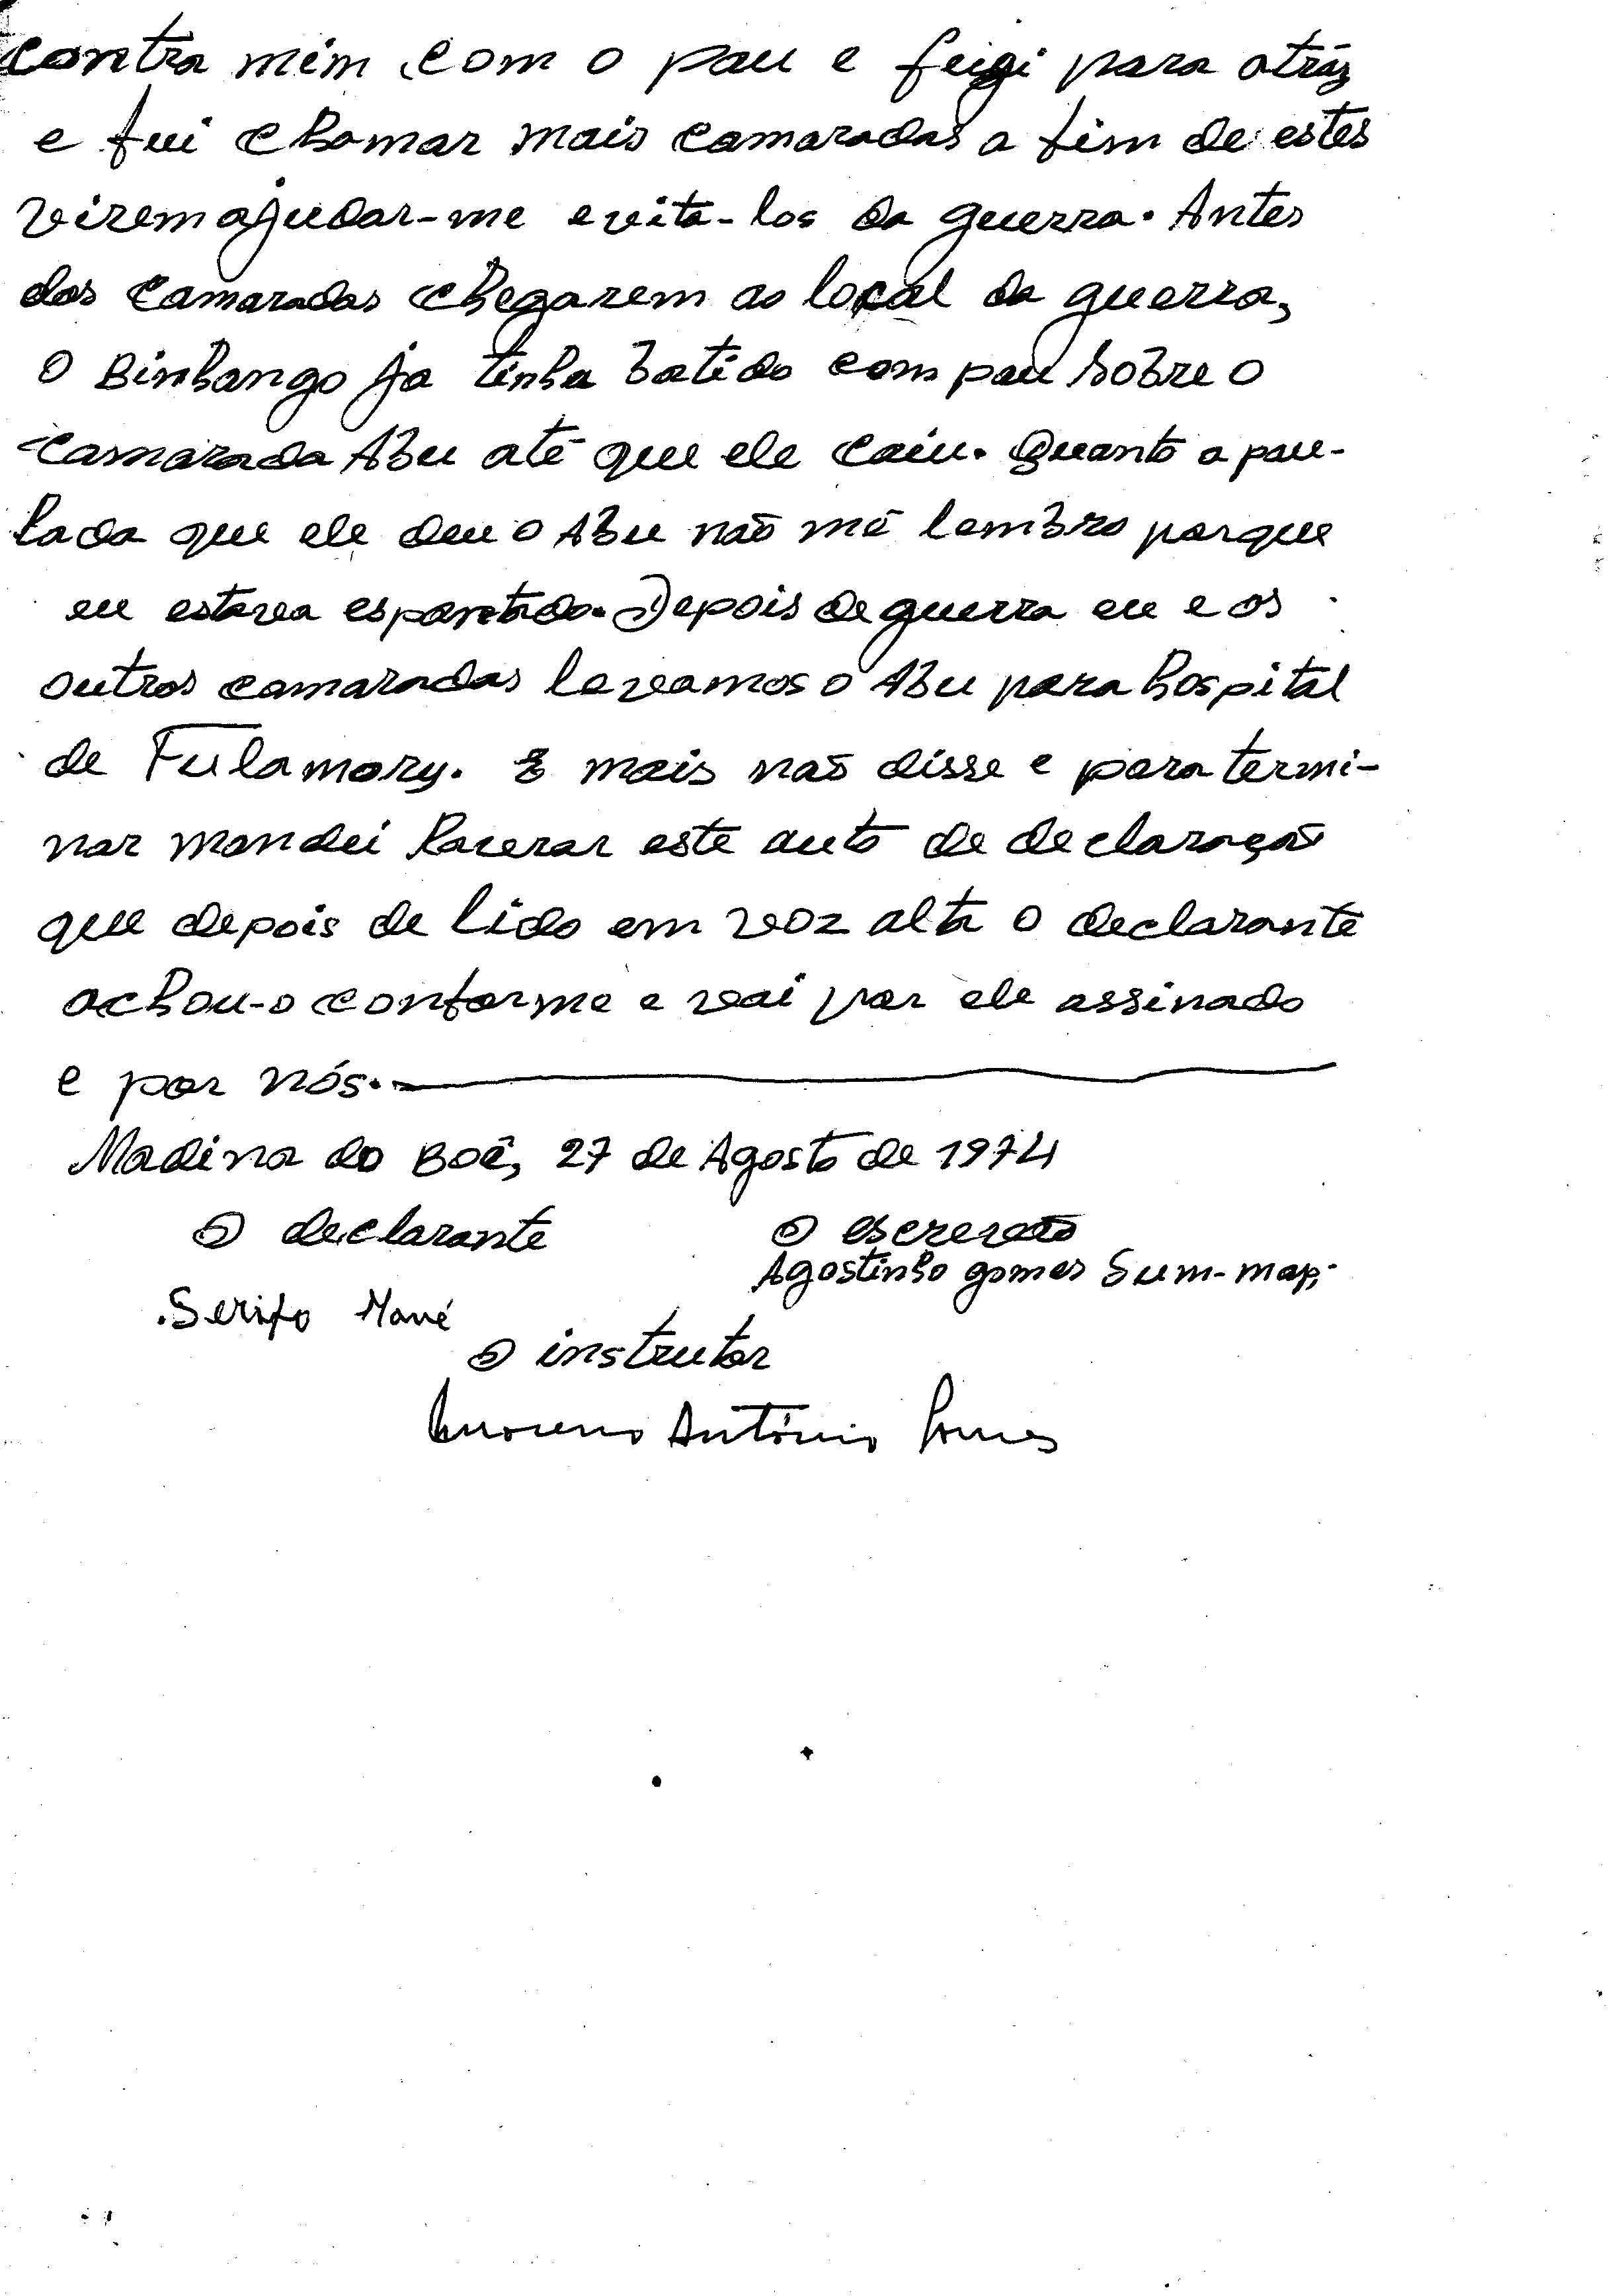 contra mim com o pau e fugi para atráz
e fui chamar mais camaradas a fim de estes
virem ajudar-me evita-los da guerra. Antes
dos camaradas chegarem ao local da guerra,
O Binhango ja tinha batido com pau sobre o
camarada Abu até que ele caiu. Quanto a pau-
lada que ele deu o Abu não me lembro porque
eu estava espantado. Depois de guerra eu e os
outros camaradas levamos o Abu para hospital
de Fulamory. E mais não disse e para termi-
nar mandei lacerar este auto de declaração
que depois de lido em voz alta o declarante
achou-o conforme e vai por ele assinado
e por nós.
Madina do Boé, 27 de Agosto de 1974
O declarante O escrevão
Agostinho gomes Sum-map
Serifo Mané
O instrutor
António Gomes